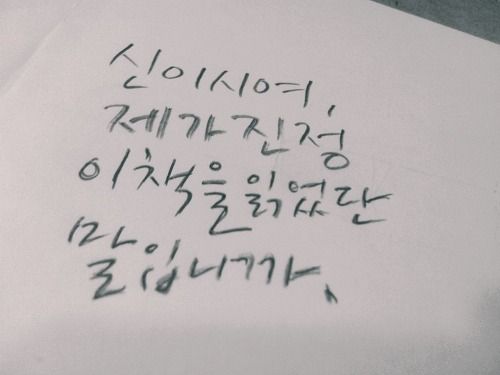 신이시여,
제가 진정
이 책을 읽었단
말입니까,